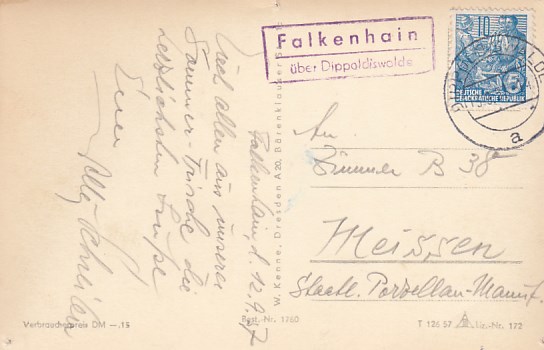 Falkenhain
über Dippoldiswalde
10
5
DEUTSCHE
DEMOKRATISCHE REPUBLIK
a
Falkenhain, d. 12.9.57
Euch allen aus unserer
Sommer-Frische die
herzlichsten Grüße
Euer
An
Zimmer B 38
Meissen
Staatl. Porzellan-Manuf.
W. Kenne, Dresden A 20, Bärenklauser
Verbraucherpreis DM —.15
Best.-Nr. 1760
T 126 57
Liz.-Nr. 172